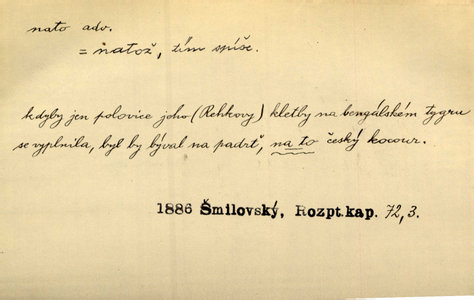 nato adv.
= natož, tím spíše.
kdyby jen polovice joho (Rehkovy) kletby na bengálském tygru
se vyplnila, byl by býval na padrť, na to český kocour.
1886 Šmilovský, Rozpt.kap. 72,3.